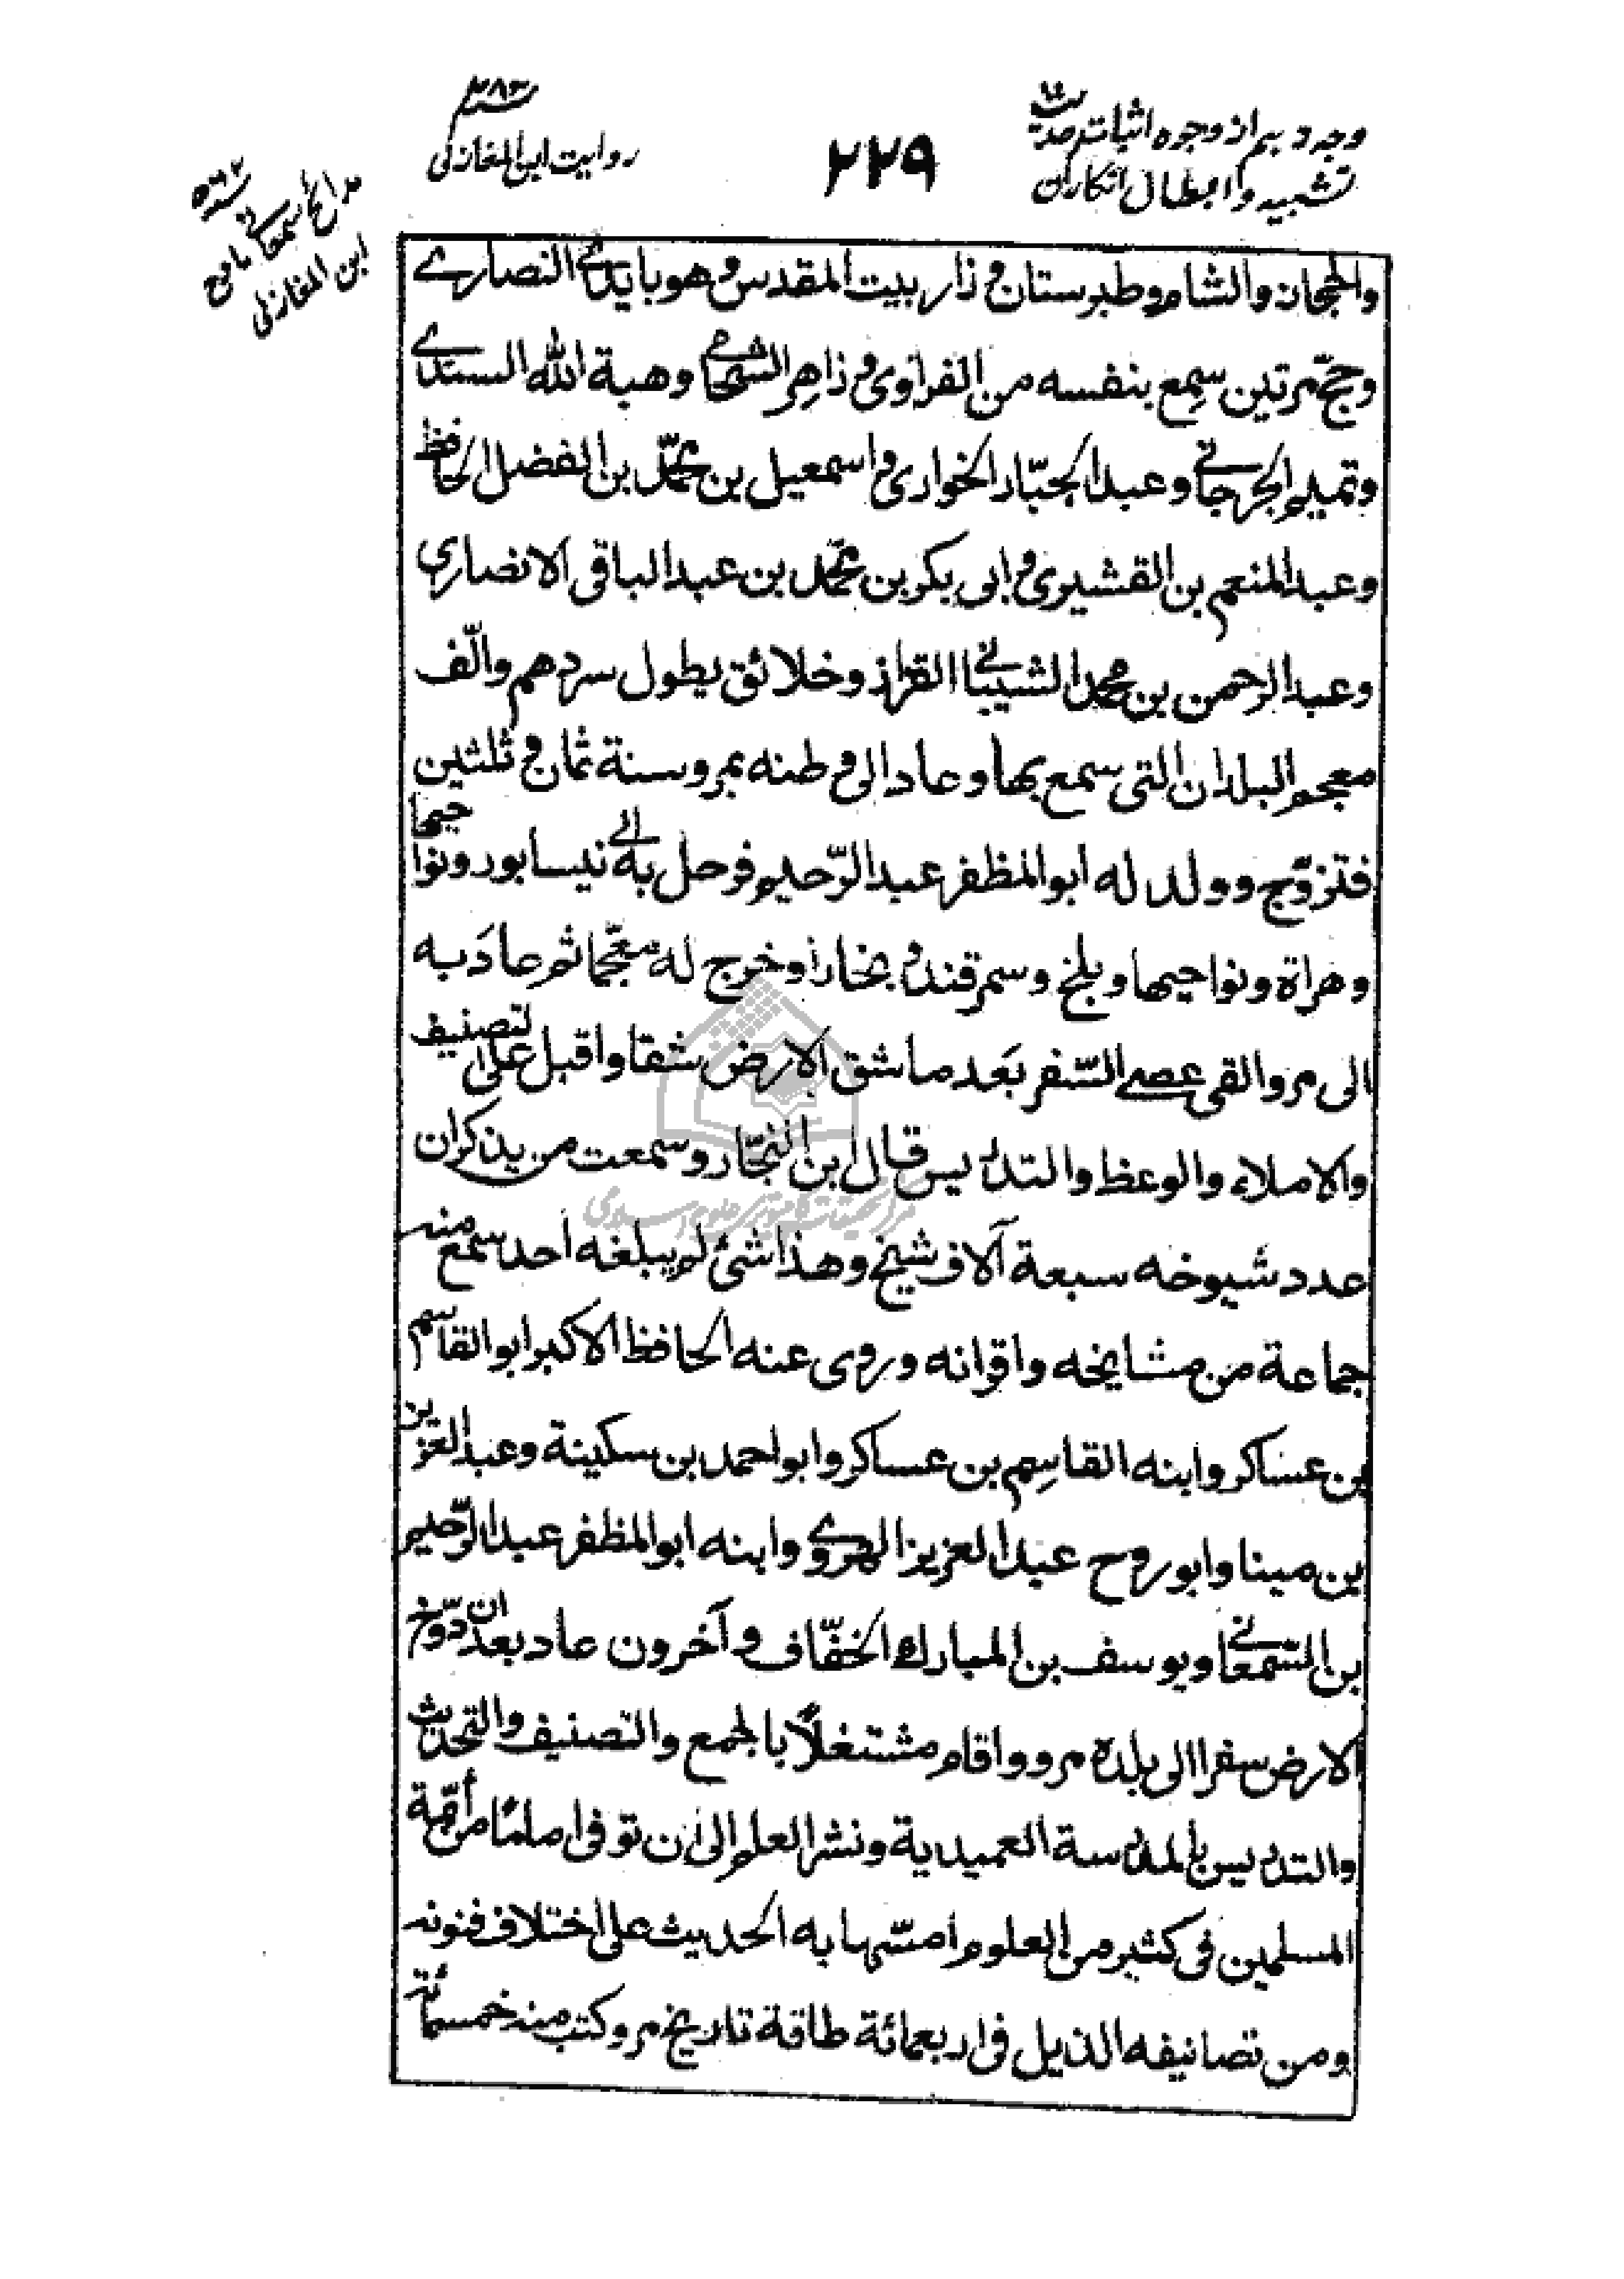 وجه دہم از وجوه اثبات حدیث
تشبیه وابطال انکار آن
۲۲۹
۴۸۳
روایت ابن المغازلی
۵۶۲
مدائح سمعانی مادح
ابن المغازلی
والحجاز والشام وطبرستان وزار بيت المقدس وهو بايدي النصارے
وحجّ مرتين سمِع بنفسه من الفراوى وزاهِر الشحامے وهبة الله السندے
وتميم الجرجانے وعبد الجبّار الخوارى واسمعيل بن محمّد بن الفضل الحافظ
وعبد المنعم بن القشيرى وابى بكر بن محمّد بن عبد الباقى الانصارى
وعبد الرحمن بن محمد الشيبانے القزاز وخلائق يطول سردهم والّف
معجم البلدان التى سمع بها وعاد الى وطنه بمرو سنة ثمان وثلثين
فتزوّج وولد له ابو المظفر عبد الرّحيم فرحل به الے نيسابور ونواحيها
وهراة ونواحيها وبلخ وسمرقند وبخارا وخرج له معجما ثم عادَ به
الى مرو القى عصے السّفر بَعد ما شق الارض شقا واقبل على التصنيف
والاملاء والوعظ والتدريس قال ابن النجّار وسمعت من يذكر ان
عدد شيوخه سبعة آلاف شيخ وهذا شئ لم يبلغه أحد سمع منه
جماعة من مشايخه واقرانه وروى عنه الحافظ الاكبر ابو القاسم
بن عساكر وابنه القاسِم بن عساكر وابو احمد بن سكينة وعبد العزيز
بن مينا وابو روح عبد العزيز الهروے وابنه ابو المظفر عبد الرّحيم
بن السّمعانے ويوسف بن المبارك الخفّاف وآخرون عاد بعد ان دوّخ
الارض سفرا الى بلده مرو واقام مشتغلًا بالجمع والتصنيف والتحديث
والتدريس بالمدرسة العميدية ونشر العلم الى ان توفى اماما من أئمّة
المسلمين فى كثير من العلوم امسّها به الحديث على اختلاف فنونه
ومن تصانيفه الذيل فى اربعمائة طاقة تاريخ مرو وكتب منه خمسمائة